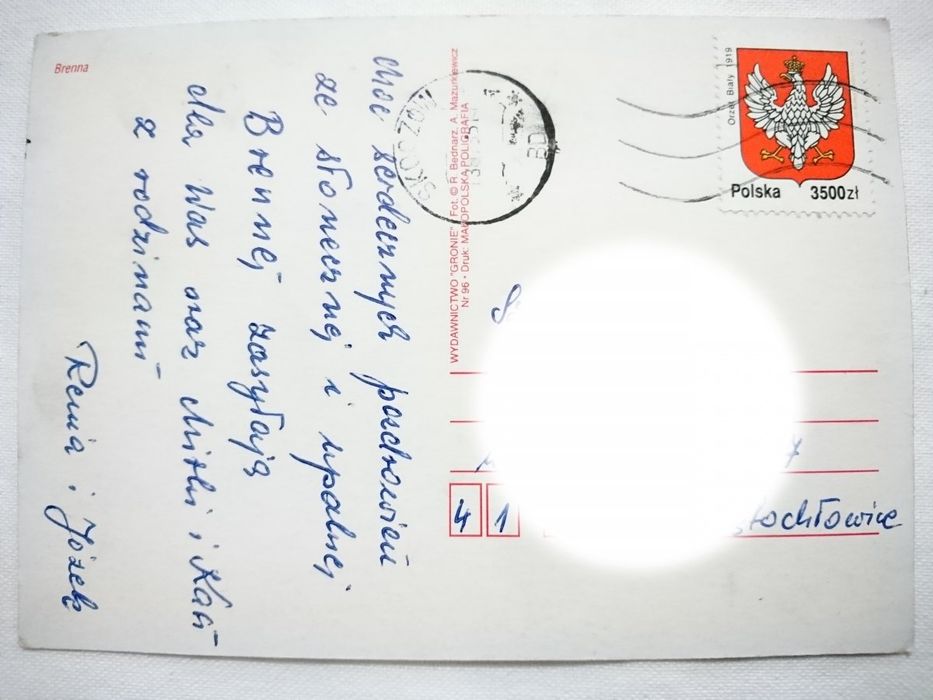 Brenna
Moc serdecznych pozdrowień
ze słonecznej i upalnej
Brennej zasyłają
dla Was oraz Mirki i Kasi
z rodzinami
Renia i Józek
WYDAWNICTWO "GRONIE" Fot. © R. Bednarz, A. Mazurkiewicz
Nr 96 - Druk: MAŁOPOLSKA POLIGRAFIA
SKOCZÓW
Orzeł Biały 1919
Polska 3500zł
41